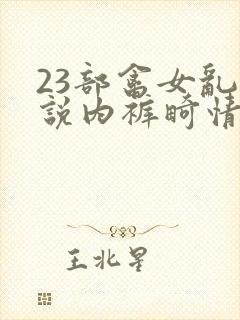 23部畲女乱
説内裤畸情
王北星